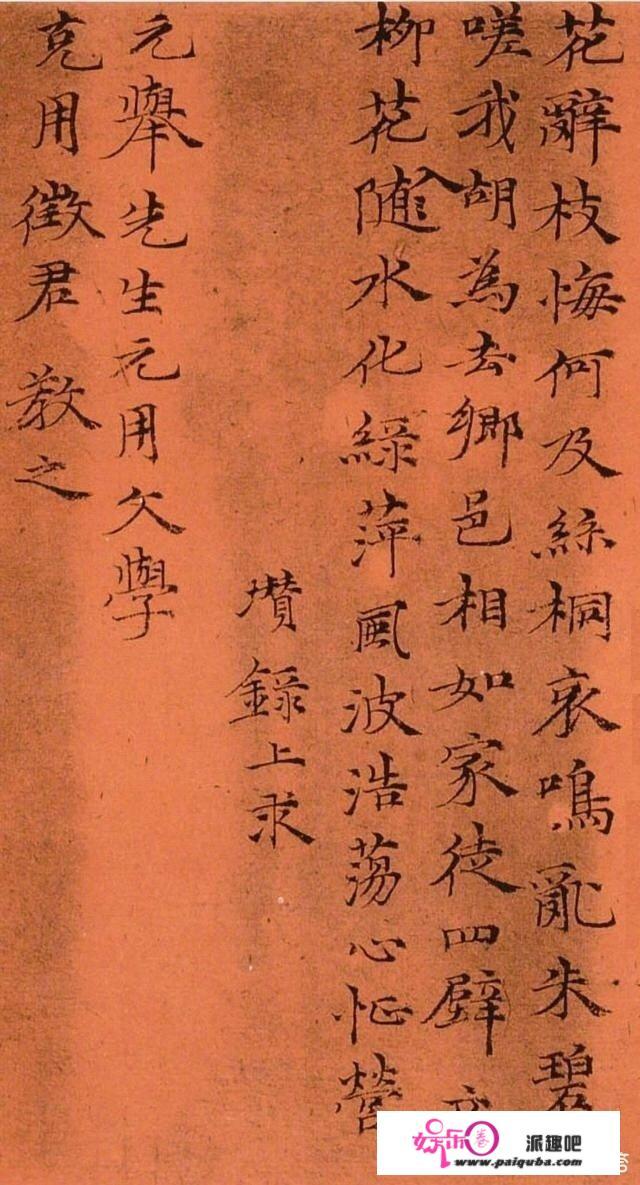 花辭枝悔何及絲桐哀鳴亂朱碧
嗟我胡為去鄉邑相如家徒四壁
柳花隨入水化綠萍風波浩蕩心怔營
瓚錄上求
元舉先生元用文學
克用徵君 教之
娱乐圈 派趣吧
www.paiquba.com